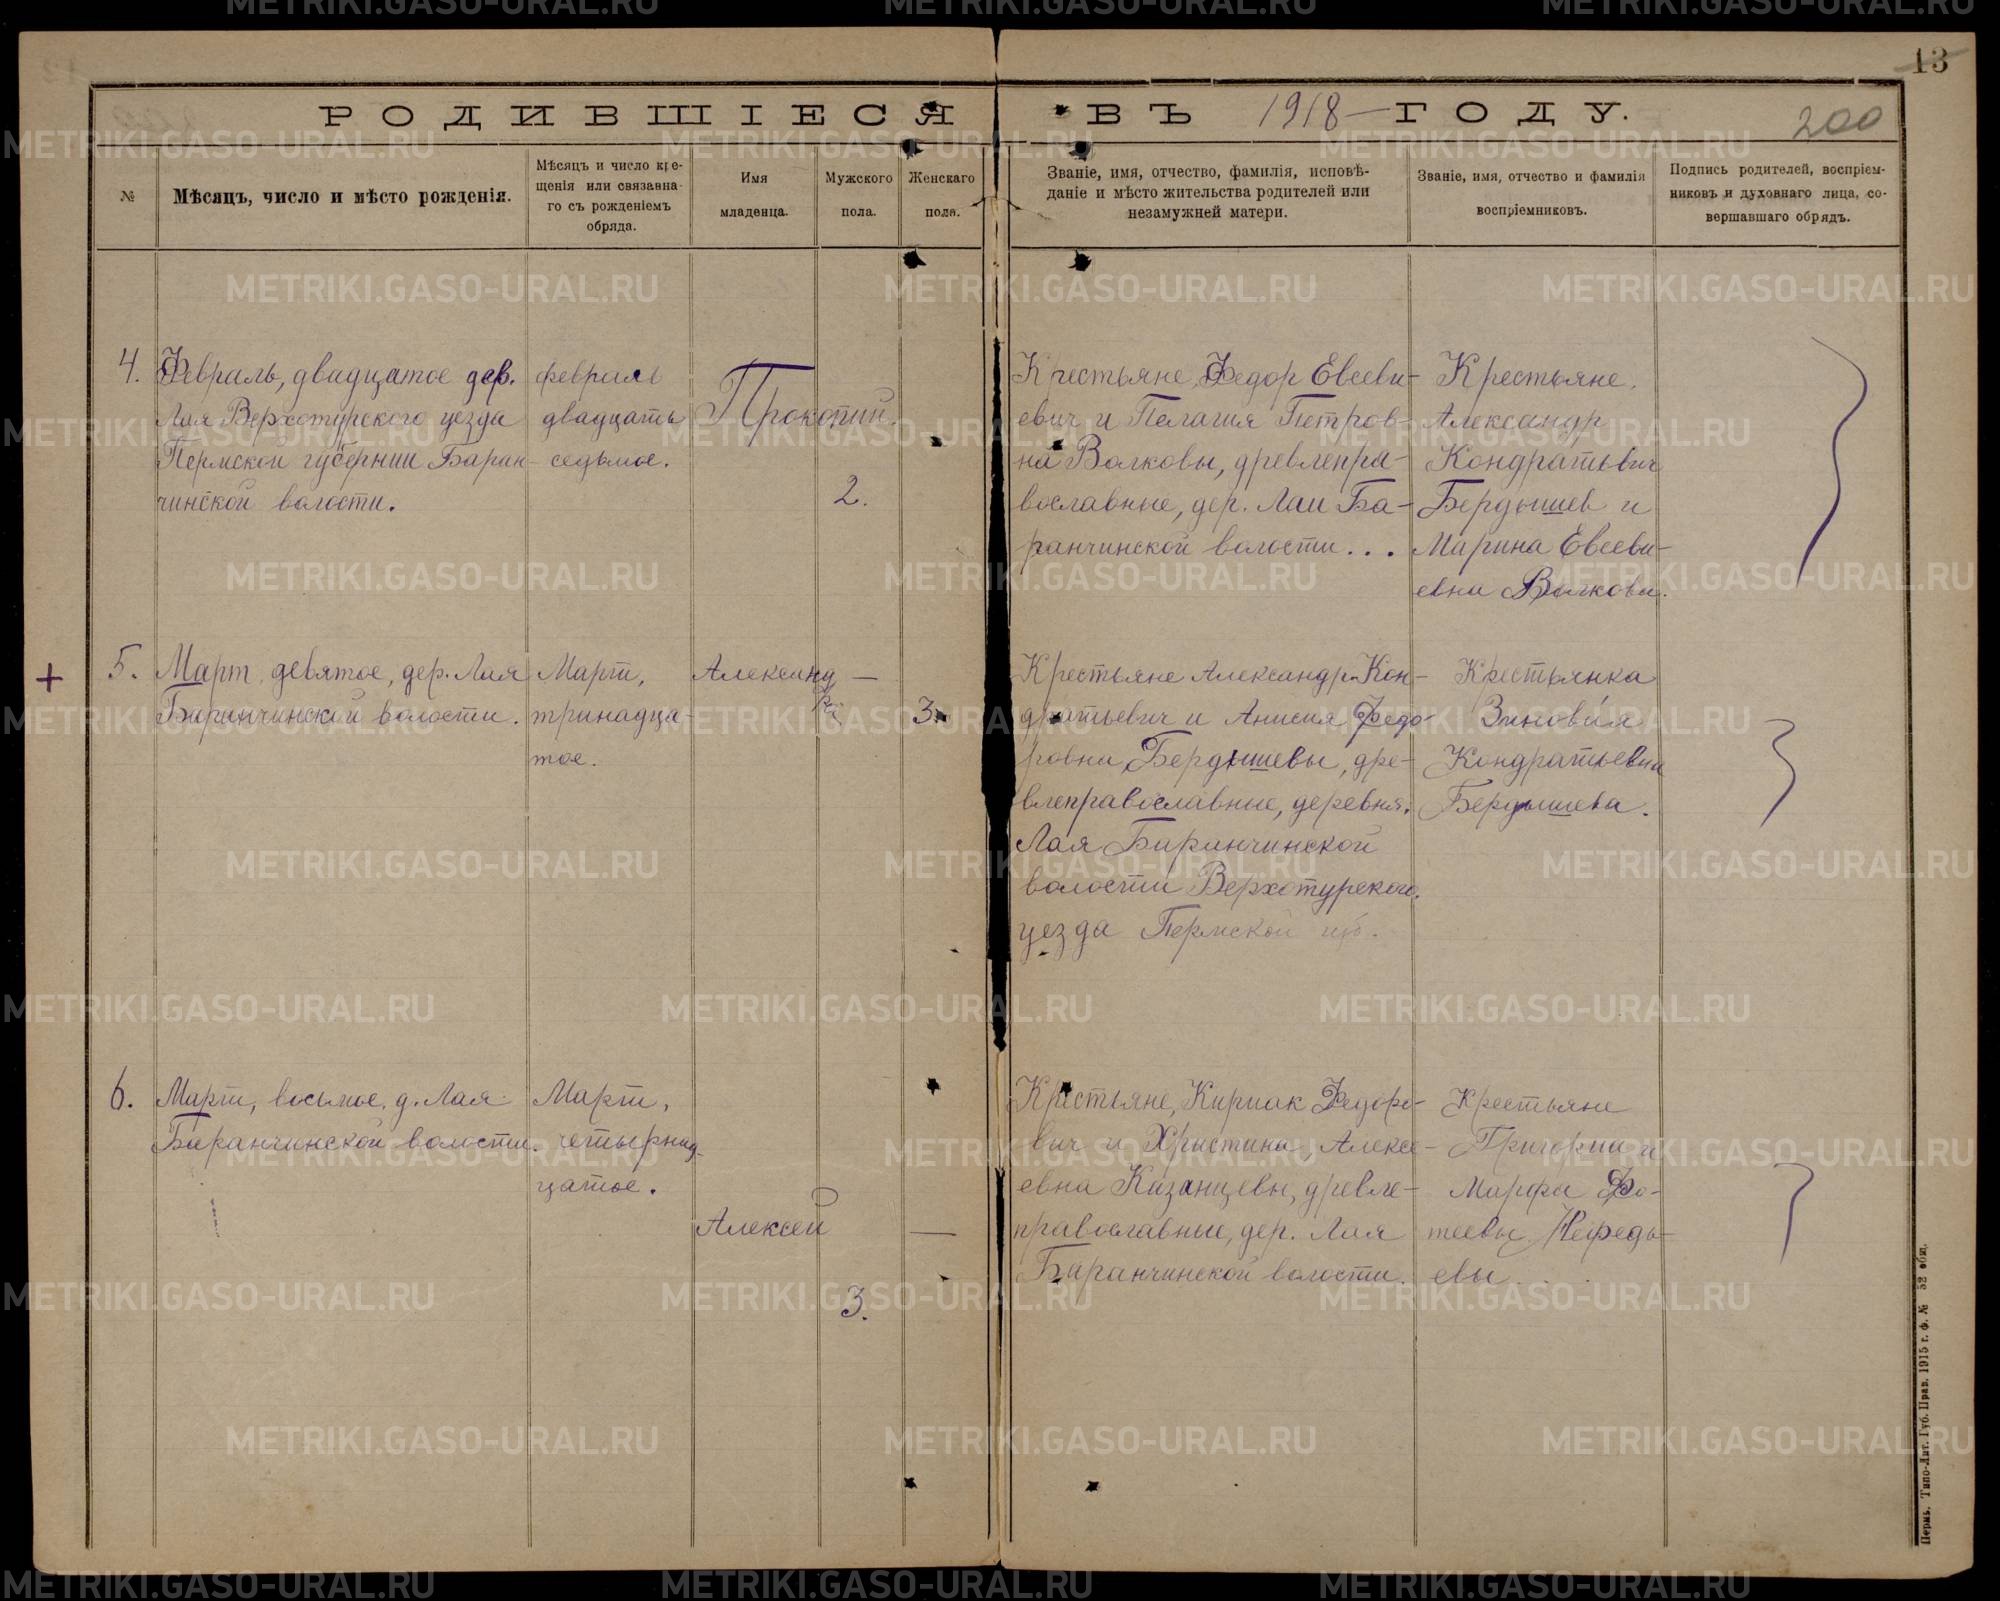 13
РОДИВШІЕСЯ ВЪ 1918 ГОДУ.
200
№
Мѣсяцъ, число и мѣсто рожденія.
Мѣсяцъ и число кре-
щенія или связанна-
го съ рожденіемъ
обряда.
Имя
младенца.
Мужского
пола.
Женскаго
пола.
Званіе, имя, отчество, фамилія, исповѣ-
даніе и мѣсто жительства родителей или
незамужней матери.
Званіе, имя, отчество и фамилія
воспріемниковъ.
Подпись родителей, воспріем-
никовъ и духовнаго лица, со-
вершавшаго обрядъ.
4.
Февраль, двадцатое дер.
Лая Верхотурского уезда
Пермской губернии Баран-
чинской волости.
февраль
двадцать
седьмое.
Прокопий.
2.
Крестьяне, Федор Евсеви-
евич и Пелагия Петров-
на Волковы, древлепра-
вославные, дер. Лаи Ба-
ранчинской волости...
Крестьяне.
Александр
Кондратьевич
Бердышев и
Марина Евсеви-
евна Волкова.
+
5.
Март, девятое, дер. Лая
Баранчинской волости.
Март,
тринадца-
тое.
Александ
ра
—
3.
Крестьяне Александр Кон-
дратьевич и Анисия Федо-
ровна Бердышевы, дре-
влеправославные, деревня.
Лая Баранчинской
волости Верхотурского.
уезда Пермской губ.
Крестьянка
Зиновия
Кондратьевна
Бердышева.
6.
Март, восьмое, д. Лая
Баранчинской волости.
Март,
четырнад-
цатое.
Алексей
—
3.
Крестьяне, Кириак Федоро-
вич и Христина, Алексе-
евна Казанцевы, древле-
православные, дер. Лая
Баранчинской волости.
Крестьяне
Григории и
Марфа Фо-
теевы Нефедь-
евы
Пермь. Типо-Лит. Губ. Прав. 1915 г. ф. № 52 общ.
METRIKI.GASO-URAL.RU